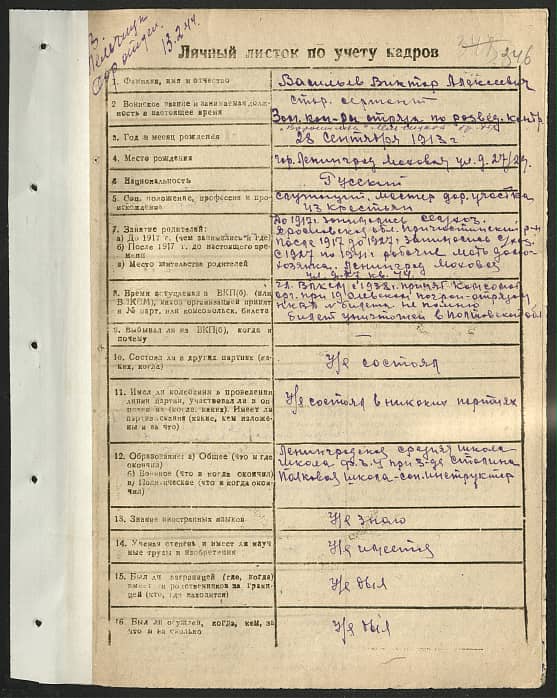 13.2.44.
346
Личный листок по учету кадров
1. Фамилия, имя и отчество
Васильев Виктор Алексеевич
2. Воинское звание и занимаемая долж-
ность в настоящее время
стар. сержант
Зам. ком-ра отряда по развед.
3. Год и месяц рождения
28 сентября 1913 г
4. Место рождения
гор. Ленинград Моховая ул. д. 27/29
4. Национальность
Русский
5. Соц. положение, профессия и про-
исхождение
служащий. мастер дор. участка
из крестьян
7. Занятие родителей:
а) До 1917 г. (чем занимались и где)
б) После 1917 г. до настоящего вре-
мени
в) Место жительства родителей
До 1917 г. занимались сельхоз.
Ярославская обл.
После 1917 до 1927 г. занимались с/хоз.
С 1927 по 1941 г. рабочие мать домо-
хозяйка. Ленинград Моховая
ул. д. 27 кв.
8. Время вступления в ВКП(б) (или
ВЛКСМ), какой организацией принят
и № парт. или комсомольск. билета
Чл. ВЛКСМ с 1932 г. принят комсомол
орг. при 19
№ билета не помню
билет уничтожен в Псковской обл
9. Выбывал ли из ВКП(б), когда и
почему
10. Состоял ли в других партиях (ка-
ких, когда)
Не состоял
11. Имел ли колебания в проведении
линии партии, участвовал ли в оп-
позициях (когда, каких). Имеет ли
партвзыскания (какие, кем наложе-
ны и за что)
Не состоял в никаких партиях
12. Образование: а) Общее (что и где
окончил)
б) Военное (что и когда окончил)
в) Политическое (что и когда окон-
чил)
Ленинградская средняя школа
школа ф.з.у при з-де Сталина
Полковая школа-сан.инструктор
13. Знание иностранных языков
Не знаю
14. Ученая степень и имеет ли науч-
ные труды и изобретения
Не имеется
15. Был ли заграницей (где, когда)
имеет ли родственников за грани-
цей (кто, где находится)
Не был
16. Был ли осужден, когда, кем, за
что и на сколько
Не был